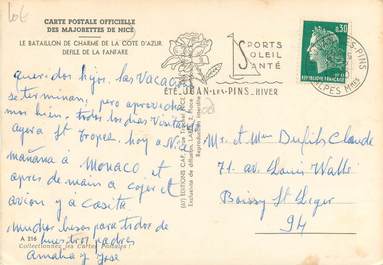 CARTE POSTALE OFFICIELLE
DES MAJORETTES DE NICE
LE BATAILLON DE CHARME DE LA COTE D'AZUR
DEFILE DE LA FANFARE
quer. dos hijos, las Vacac.
se terminan, pero aprovechada
muy bien, todos los dias visitas
ayer a St Tropez, hoy a Nice
mañana a Monaco, et
apres de main a cojer et
avion y a casita
muchos besos para todos de
vuestros padres
Amalia y Jose
A 216
Collectionnez les Cartes Postales !
(67) EDITIONS CAP
Reproduction interdite
SPORTS
SOLEIL
SANTÉ
ÉTÉ JUAN-LES-PINS HIVER
0,30
REPUBLIQUE FRANÇAISE
ALPES MMES
Mr. et Mme Dufils Claude
71. av. Louis Walle
Boissy St Léger
94